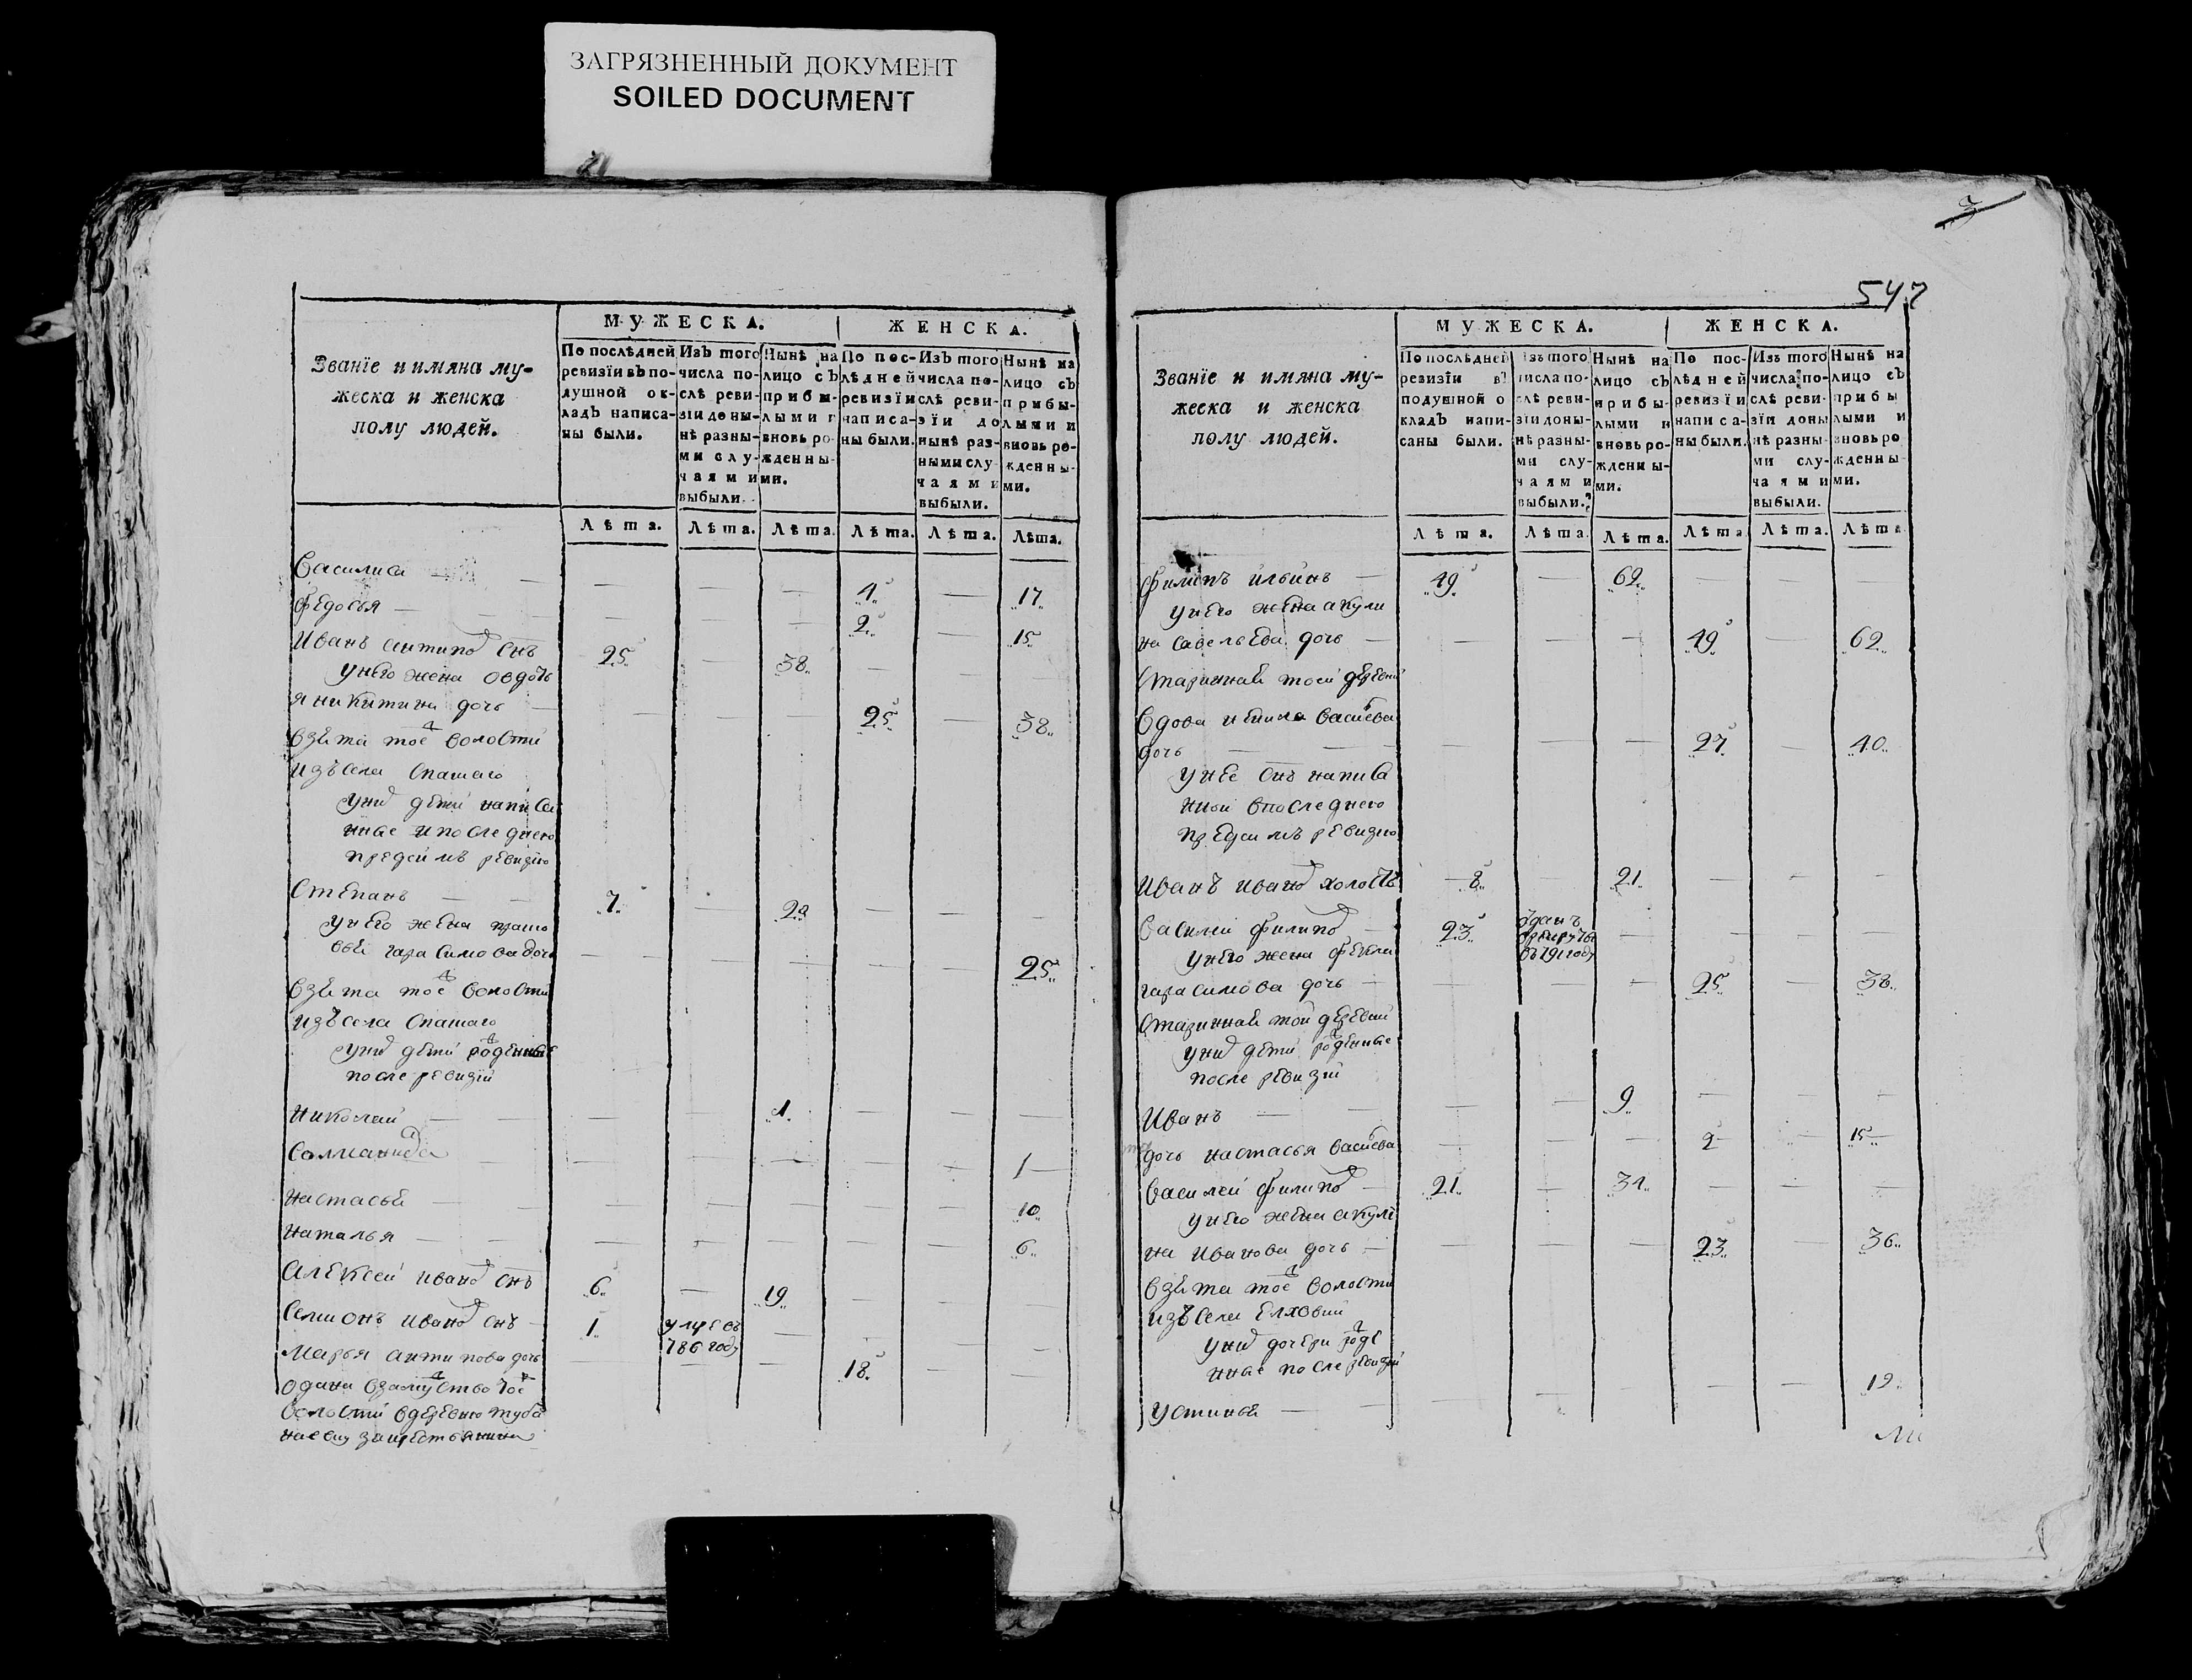 ЗАГРЯЗНЕННЫЙ ДОКУМЕНТ
SOILED DOCUMENT
Званїе и имяна му-
жеска и женска
полу людей.
МУЖЕСКА.
ЖЕНСКА.
По послѣдней
ревизїи въ по-
душной ок-
ладъ написа-
ны были.
Изъ того
числа по-
слѣ реви-
зїи доны-
нѣ разны-
ми слу-
чаями
выбыли.
Нынѣ на
лицо съ
прибы-
лыми и
вновь ро-
жденны-
ми.
По пос-
лѣдней
ревизїи
написа-
ны были.
Изъ того
числа по-
слѣ реви-
зїи до
нынѣ раз-
ными слу
чаями
выбыли.
Нынѣ на
лицо съ
прибы-
лыми и
вновь ро-
жденны-
ми.
Лѣта. Лѣта. Лѣта. Лѣта. Лѣта. Лѣта.
Василиса — — — 4 — 17
Федосья — — — 2 — 15
Иванъ антипо снъ 25 — 38 — —
у него жена овдоть
я никитина дочь — — — 25 — 38
взета тое волости
изъ села спаскаго
у них дети написа
ные и последнего
пред сим ревизию
Степанъ 7 — 20 — — —
у него жена праско
вья гарасимова дочь — — — — — 25
взета тое волости
изъ села спаскаго
у них дети роденные
после ревизїи
Николай — — 1 — — —
Саломанида — — — — — 1
Настасья — — — — — 10
Наталья — — — — — 6
Алексей ивано снъ 6 — 19 — — —
Семионъ ивано снъ 1 умре въ — — —
786 году
Марья антипова дочь — — — 18 — —
одана взамуство тое
волости в деревню
за крестьянина
3
547
Званїе и имяна му-
жеска и женска
полу людей.
МУЖЕСКА.
ЖЕНСКА.
По послѣдней
ревизїи въ
подушной о
кладъ напи-
саны были.
Изъ того
числа по-
слѣ реви-
зїи доны-
нѣ разны-
ми слу-
чаями
выбыли.
Нынѣ на
лицо съ
прибы-
лыми и
вновь ро-
жденны-
ми.
По пос-
лѣдней
ревизїи
написа-
ны были.
Изъ того
числа по-
слѣ реви-
зїи доны
нѣ разны-
ми слу-
чаями
выбыли.
Нынѣ на
лицо съ
прибы
лыми и
вновь ро
жденны-
ми.
Лѣта. Лѣта. Лѣта. Лѣта. Лѣта. Лѣта
Филипъ ильинъ 49 — 62 — —
у него жена акули
на савельева дочь — — — 49 — 62
Стариннае тоей деревни
Вдова васильева
дочь — — — 27 — 40
у нее снъ написа
нной в последнего
пред симъ ревизию
Иванъ ивано холостъ 8 — 21 — — —
Василей филипо 23 оданъ — — — —
врекруты
въ 791 году
у него жена фекла
гарасимова дочь — — — 25 — 38
Стариннае той деревни
у них дети роденные
после ревизїи
Иванъ — — 9 — — —
дочь настасья васильева — — — 2 — 15
Василей филипо 21 — 34 — — —
у него жена акули
на иванова дочь — — — 23 — 36
взета тое волости
изъ села елховки
у них дочери роде
нные после ревизїи
Устинья — — — — — 12
Ма